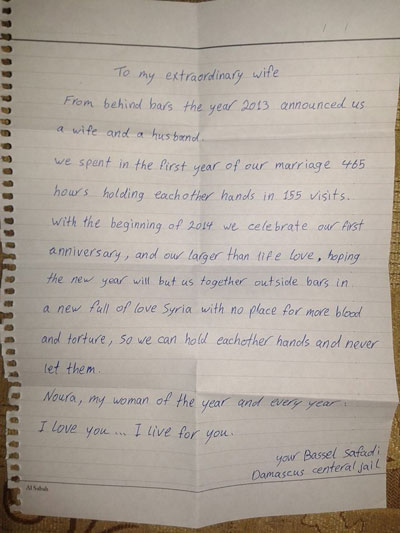 To my extraordinary wife
From behind bars the year 2013 announced us
a wife and a husband.
we spent in the first year of our marriage 465
hours holding eachother hands in 155 visits.
with the beginning of 2014 we celebrate our first
anniversary, and our larger than life love, hoping
the new year will but us together outside bars in
a new full of love Syria with no place for more blood
and torture, so we can hold eachother hands and never
let them.
Noura, my woman of the year and every year.
I love you ... I live for you.
your Bassel Safadi
Damascus centeral jail
Al Sabah